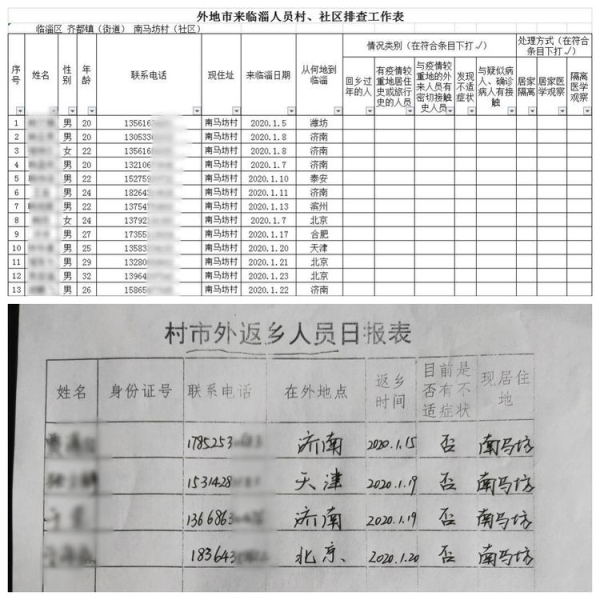 外地市来临淄人员村、社区排查工作表
临淄区 齐都镇（街道） 南马坊村（社区）
序号 姓名 性别 年龄 联系电话 现住址 来临淄日期 从何地到临淄 情况类别（在符合条目下打√） 处理方式（在符合条目下打√）
回乡过年的人 有疫情较重地居住史或旅行史的人员 与疫情较重地的外来人员有密切接触史人员 发现不适症状 与疑似病人、确诊病人有接触 居家隔离 居家医学观察 隔离医学观察
1 男 20 13561 南马坊村 2020.1.5 潍坊
2 男 20 13053 南马坊村 2020.1.8 济南
3 女 22 13561 南马坊村 2020.1.8 济南
4 男 20 13210 南马坊村 2020.1.7 济南
5 男 22 15275 南马坊村 2020.1.10 泰安
6 男 24 18264 南马坊村 2020.1.11 济南
7 男 22 13754 南马坊村 2020.1.13 滨州
8 女 24 13792 南马坊村 2020.1.7 北京
9 男 27 17355 南马坊村 2020.1.17 合肥
10 男 25 13583 南马坊村 2020.1.20 天津
11 男 29 13280 南马坊村 2020.1.21 北京
12 男 32 13964 南马坊村 2020.1.21 北京
13 男 26 15865 南马坊村 2020.1.22 济南
村市外返乡人员日报表
姓名 身份证号 联系电话 在外地点 返乡时间 目前是否有不适症状 现居住地
1785253 济南 2020.1.15 否 南马坊
1531428 天津 2020.1.19 否 南马坊
136686 济南 2020.1.19 否 南马坊
18364 北京、 2020.1.20 否 南马坊